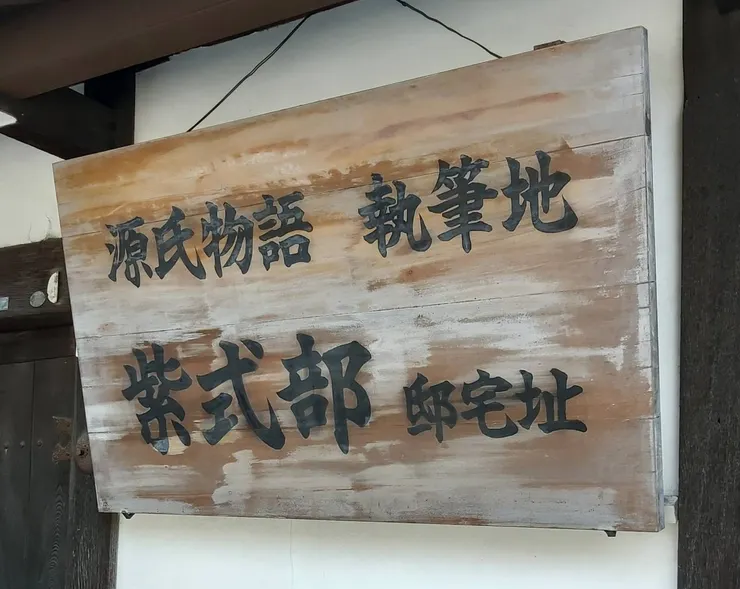 源氏物語 執筆地
紫式部 邸宅址